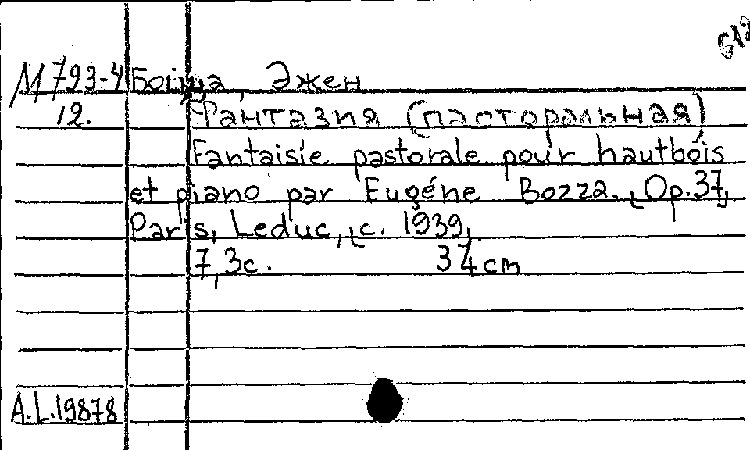 М793-4 Боцца, Эжен
12. Фантазия (пасторальная)
Fantaisie pastorale pour hautbois
et piano par Eugéne Bozza. Op.37,
Paris, Leduc, c. 1939,
7,3c. 34cm
A.L.19878